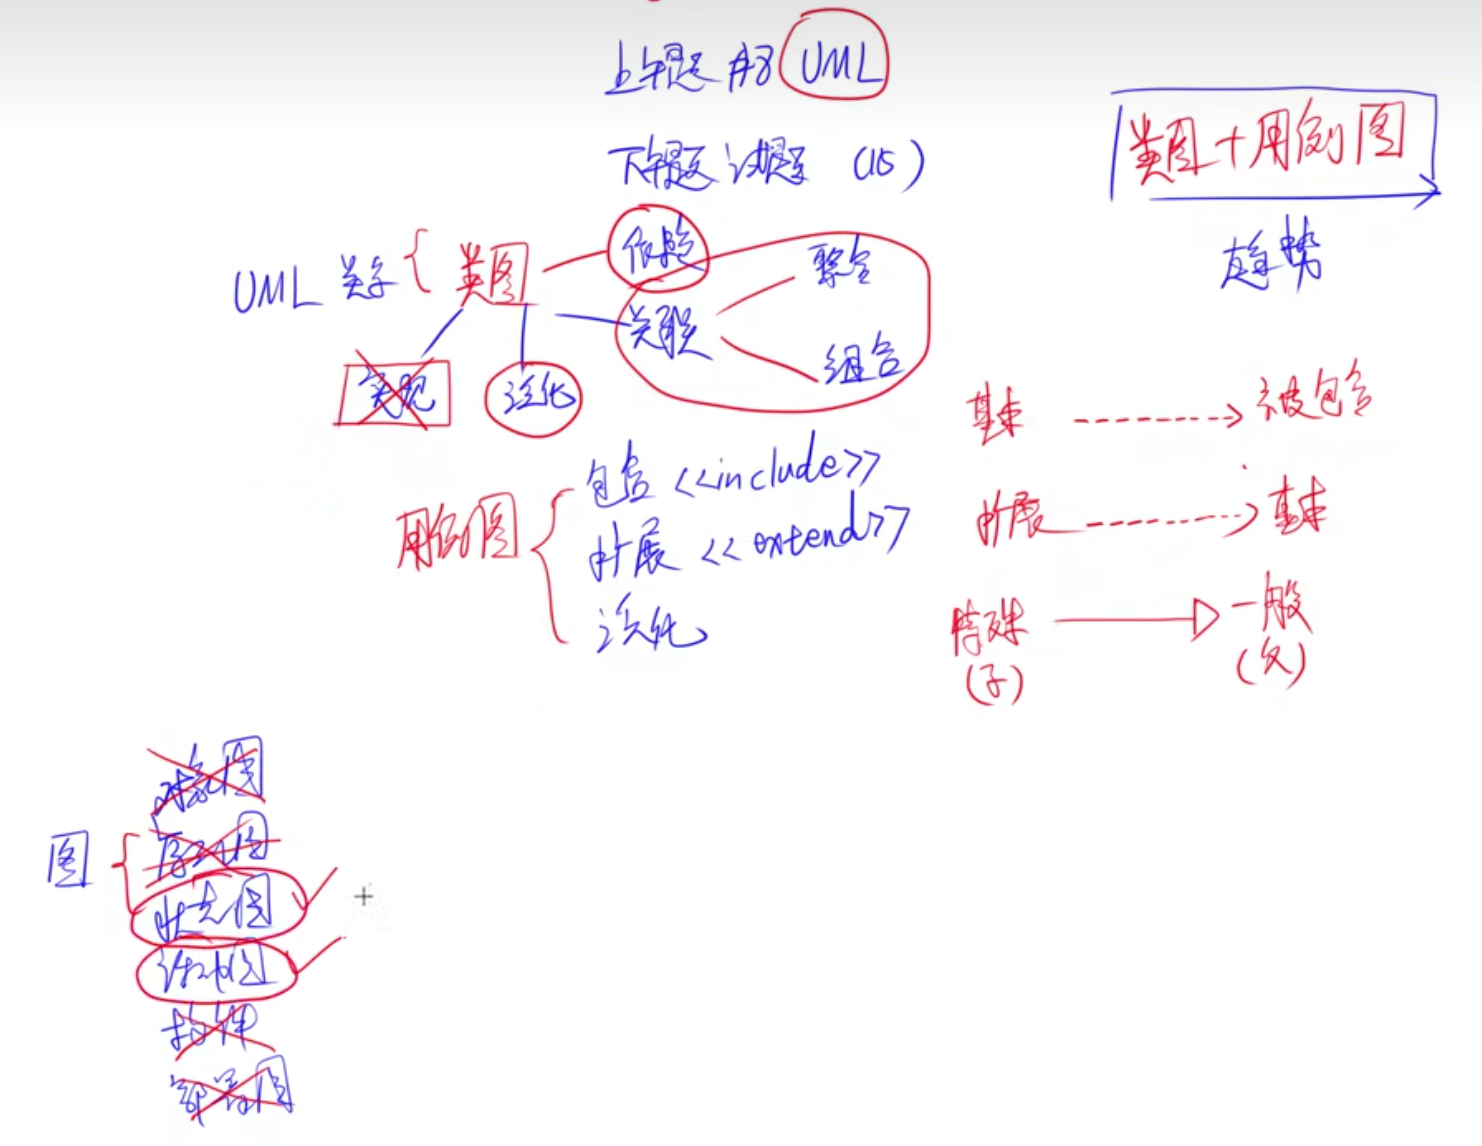 上午题 UML
下午题 试题三 (15)
类图+用例图
趋势
UML 关系 { 类图
依赖
关联
聚合
组合
实现
泛化
用例图 {
包含 <<include>>
扩展 <<extend>>
泛化
基本 -------> 被包含
扩展 -------> 基本
特殊 一般
(子) (父)
图 {
对象图
序列图
状态图
活动图
构件
部署图